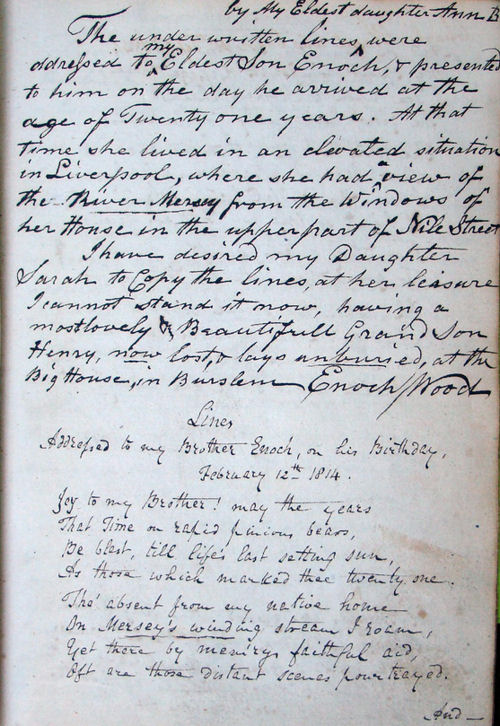 by My Eldest daughter Ann B
The under written lines, were
addressed to my Eldest Son Enoch, & presented
to him on the day he arrived at the
age of Twenty one years. At that
time she lived in an elevated situation
in Liverpool, where she had a view of
the River Mersey from the Windows of
her House in the upper part of Nile Street
I have desired my Daughter
Sarah to Copy the lines, at her leisure
I cannot stand it now, having a
most lovely & Beautifull Grand Son
Henry, now lost, & lays unburied, at the
Big House, in Burslem Enoch Wood
Lines
Addressed to my Brother Enoch, on his Birthday,
February 12th 1814.
Joy to my Brother! may the years
That Time on rapid pinions bears,
Be blest, till life's last setting sun,
As those which marked thee twenty one.
Tho' absent from my native home
On Mersey's winding stream I roam,
Yet there by mem'rys faithful aid,
Oft are those distant scenes pourtrayed.
And—